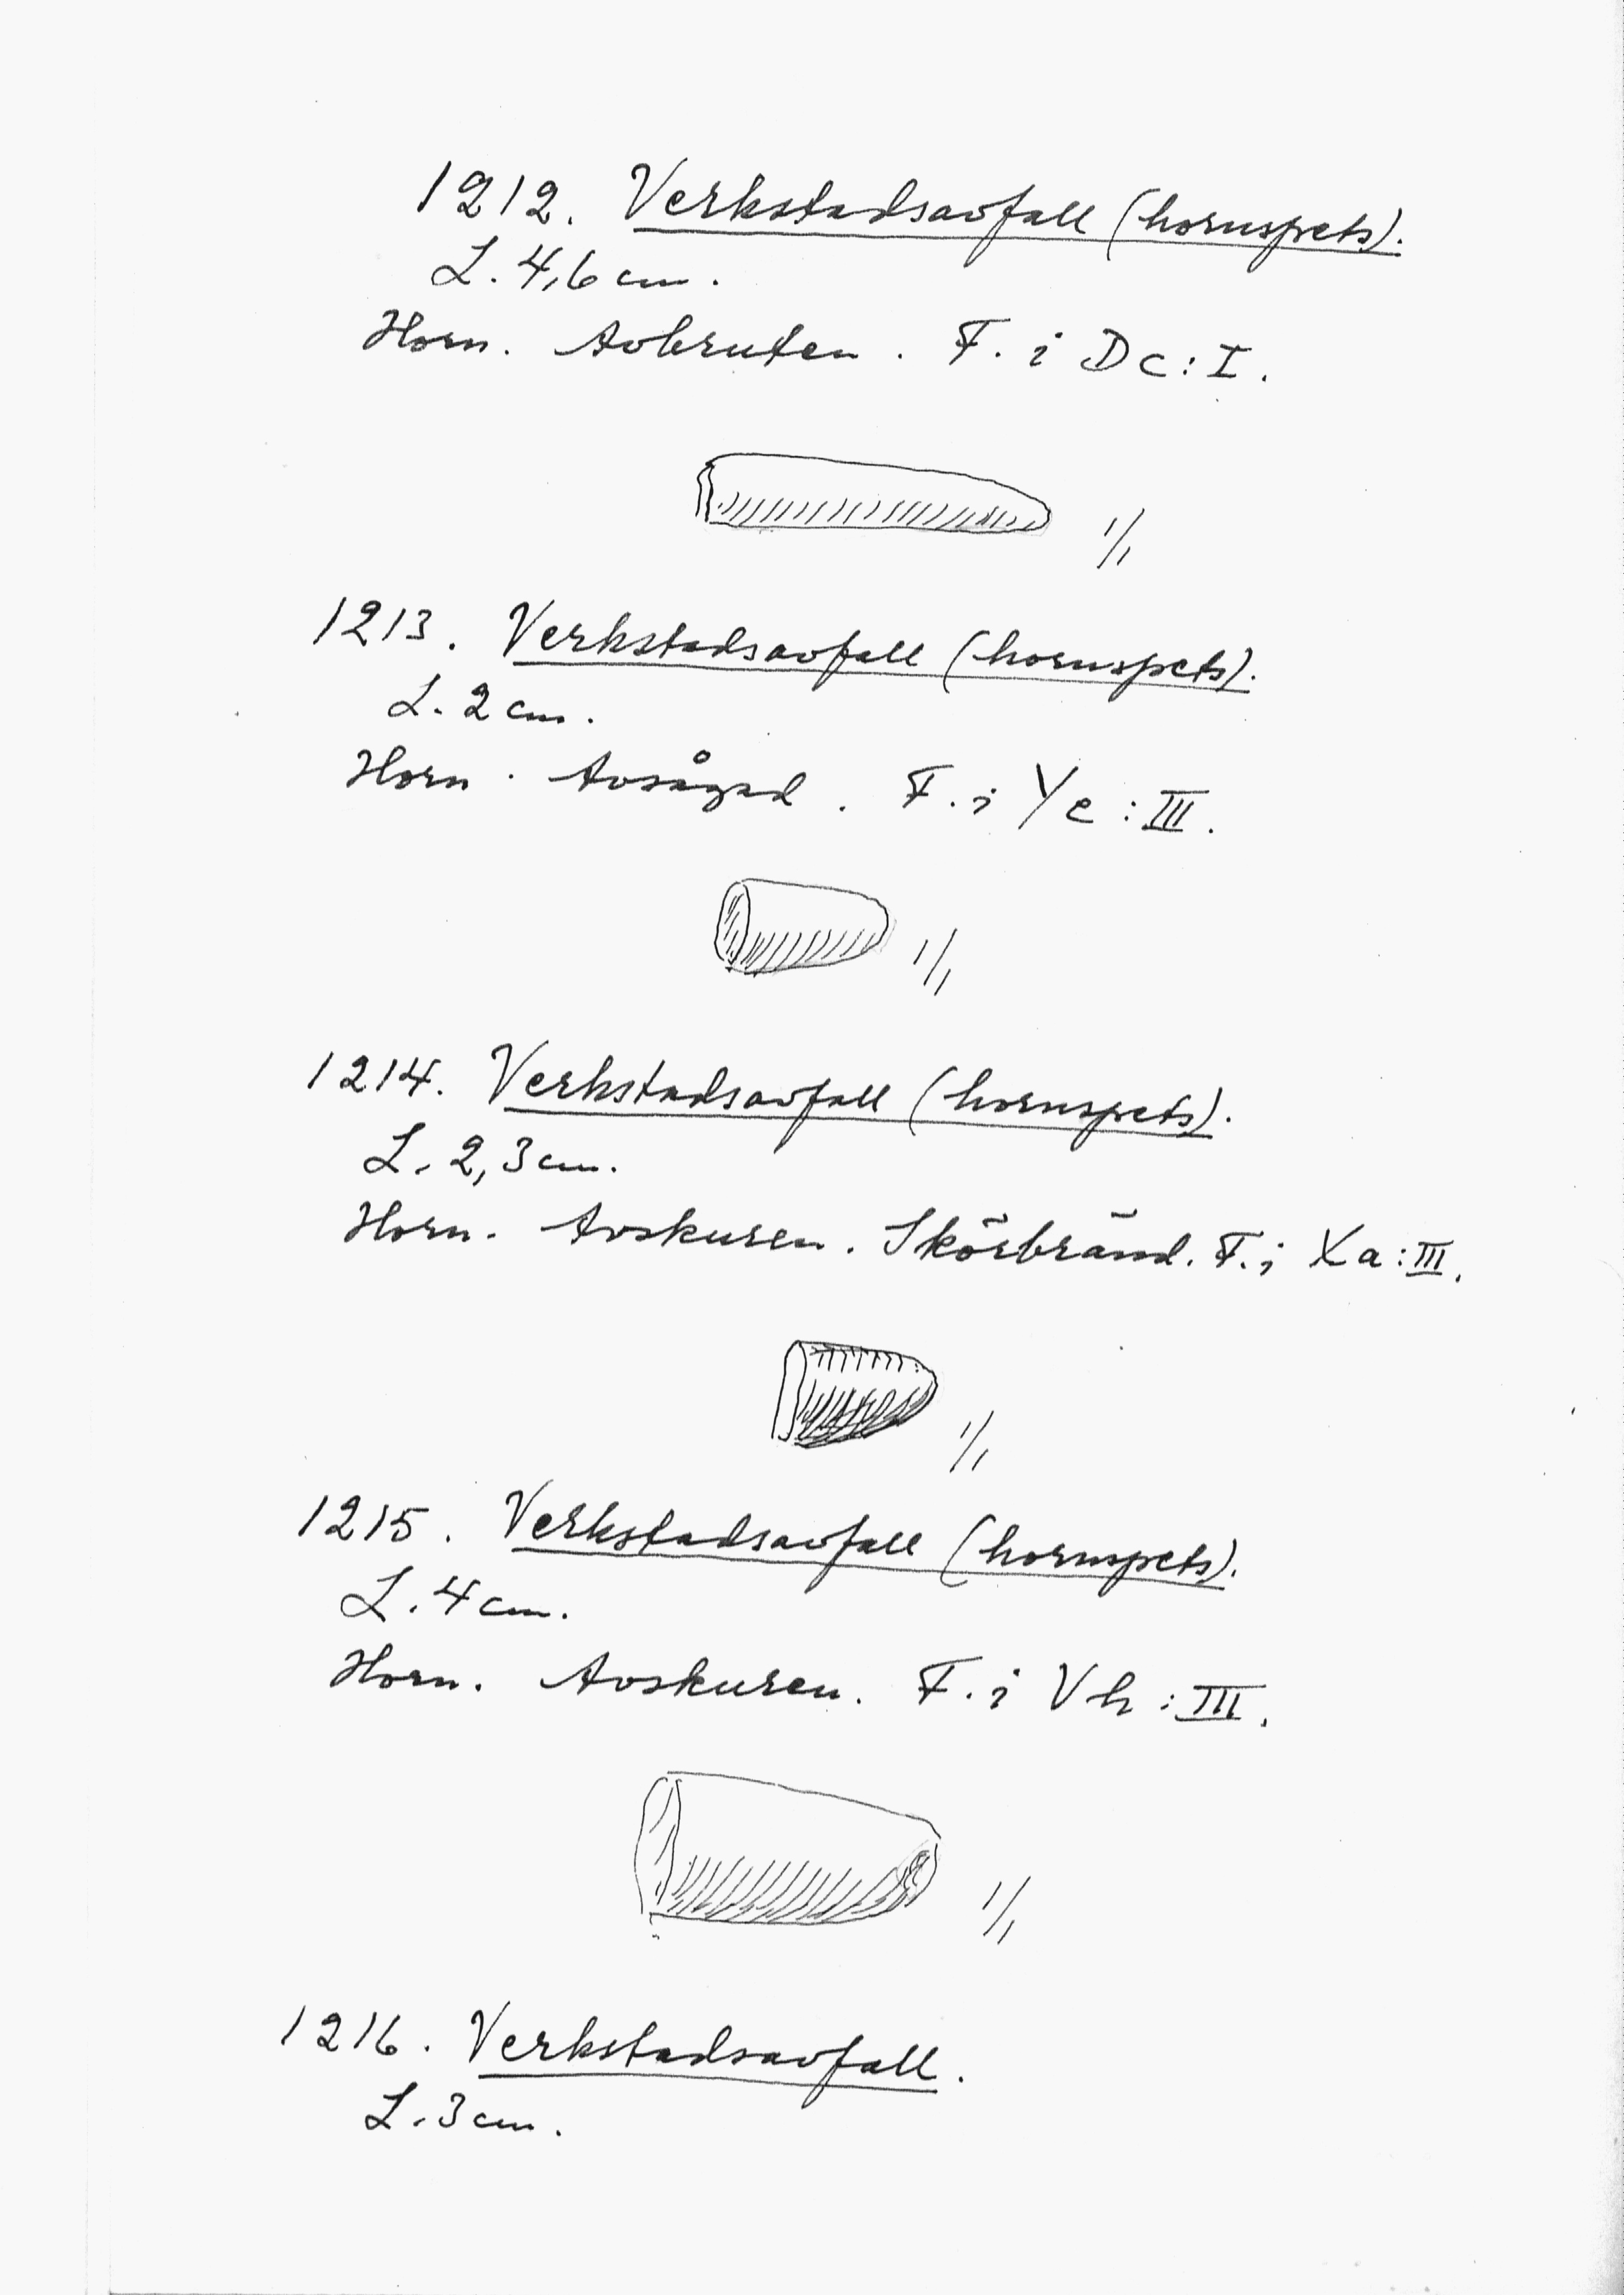 1212. Verkstadsavfall (hornspets).
L. 4,6 cm.
Horn. Avbruten. F. i Dc: I.
1/1
1213. Verkstadsavfall (hornspets).
L. 2 cm.
Horn. Avsågad. F. i Ye: III.
1/1
1214. Verkstadsavfall (hornspets).
L. 2,3 cm.
Horn. Avskuren. Skörbränd. F. i Xa: III.
1/1
1215. Verkstadsavfall (hornspets).
L. 4 cm.
Horn. Avskuren. F. i Vh: III.
1/1
1216. Verkstadsavfall.
L. 3 cm.